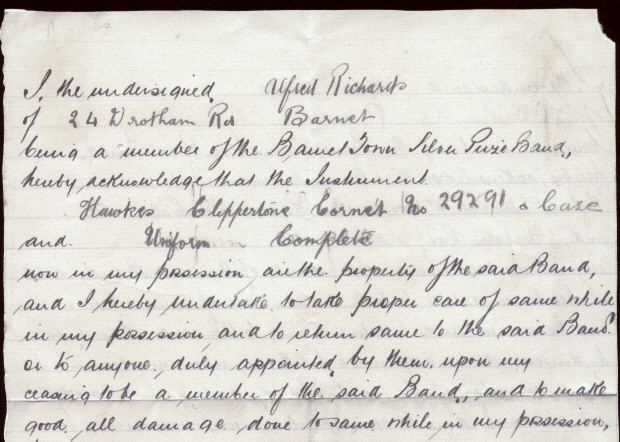 I, the undersigned, Alfred Richards
of 24 Wrotham Rd Barnet
being a member of the Barnet Town Silver Prize Band,
hereby acknowledge that the Instrument
Hawkes Clippertone Cornet No 29291 & Case
and Uniform Complete
now in my possession, are the property of the said Band,
and I hereby undertake to take proper care of same while
in my possession, and to return same to the said Band
or to anyone, duly appointed by them, upon my
ceasing to be a member of the said Band, and to make
good all damage done to same while in my possession,